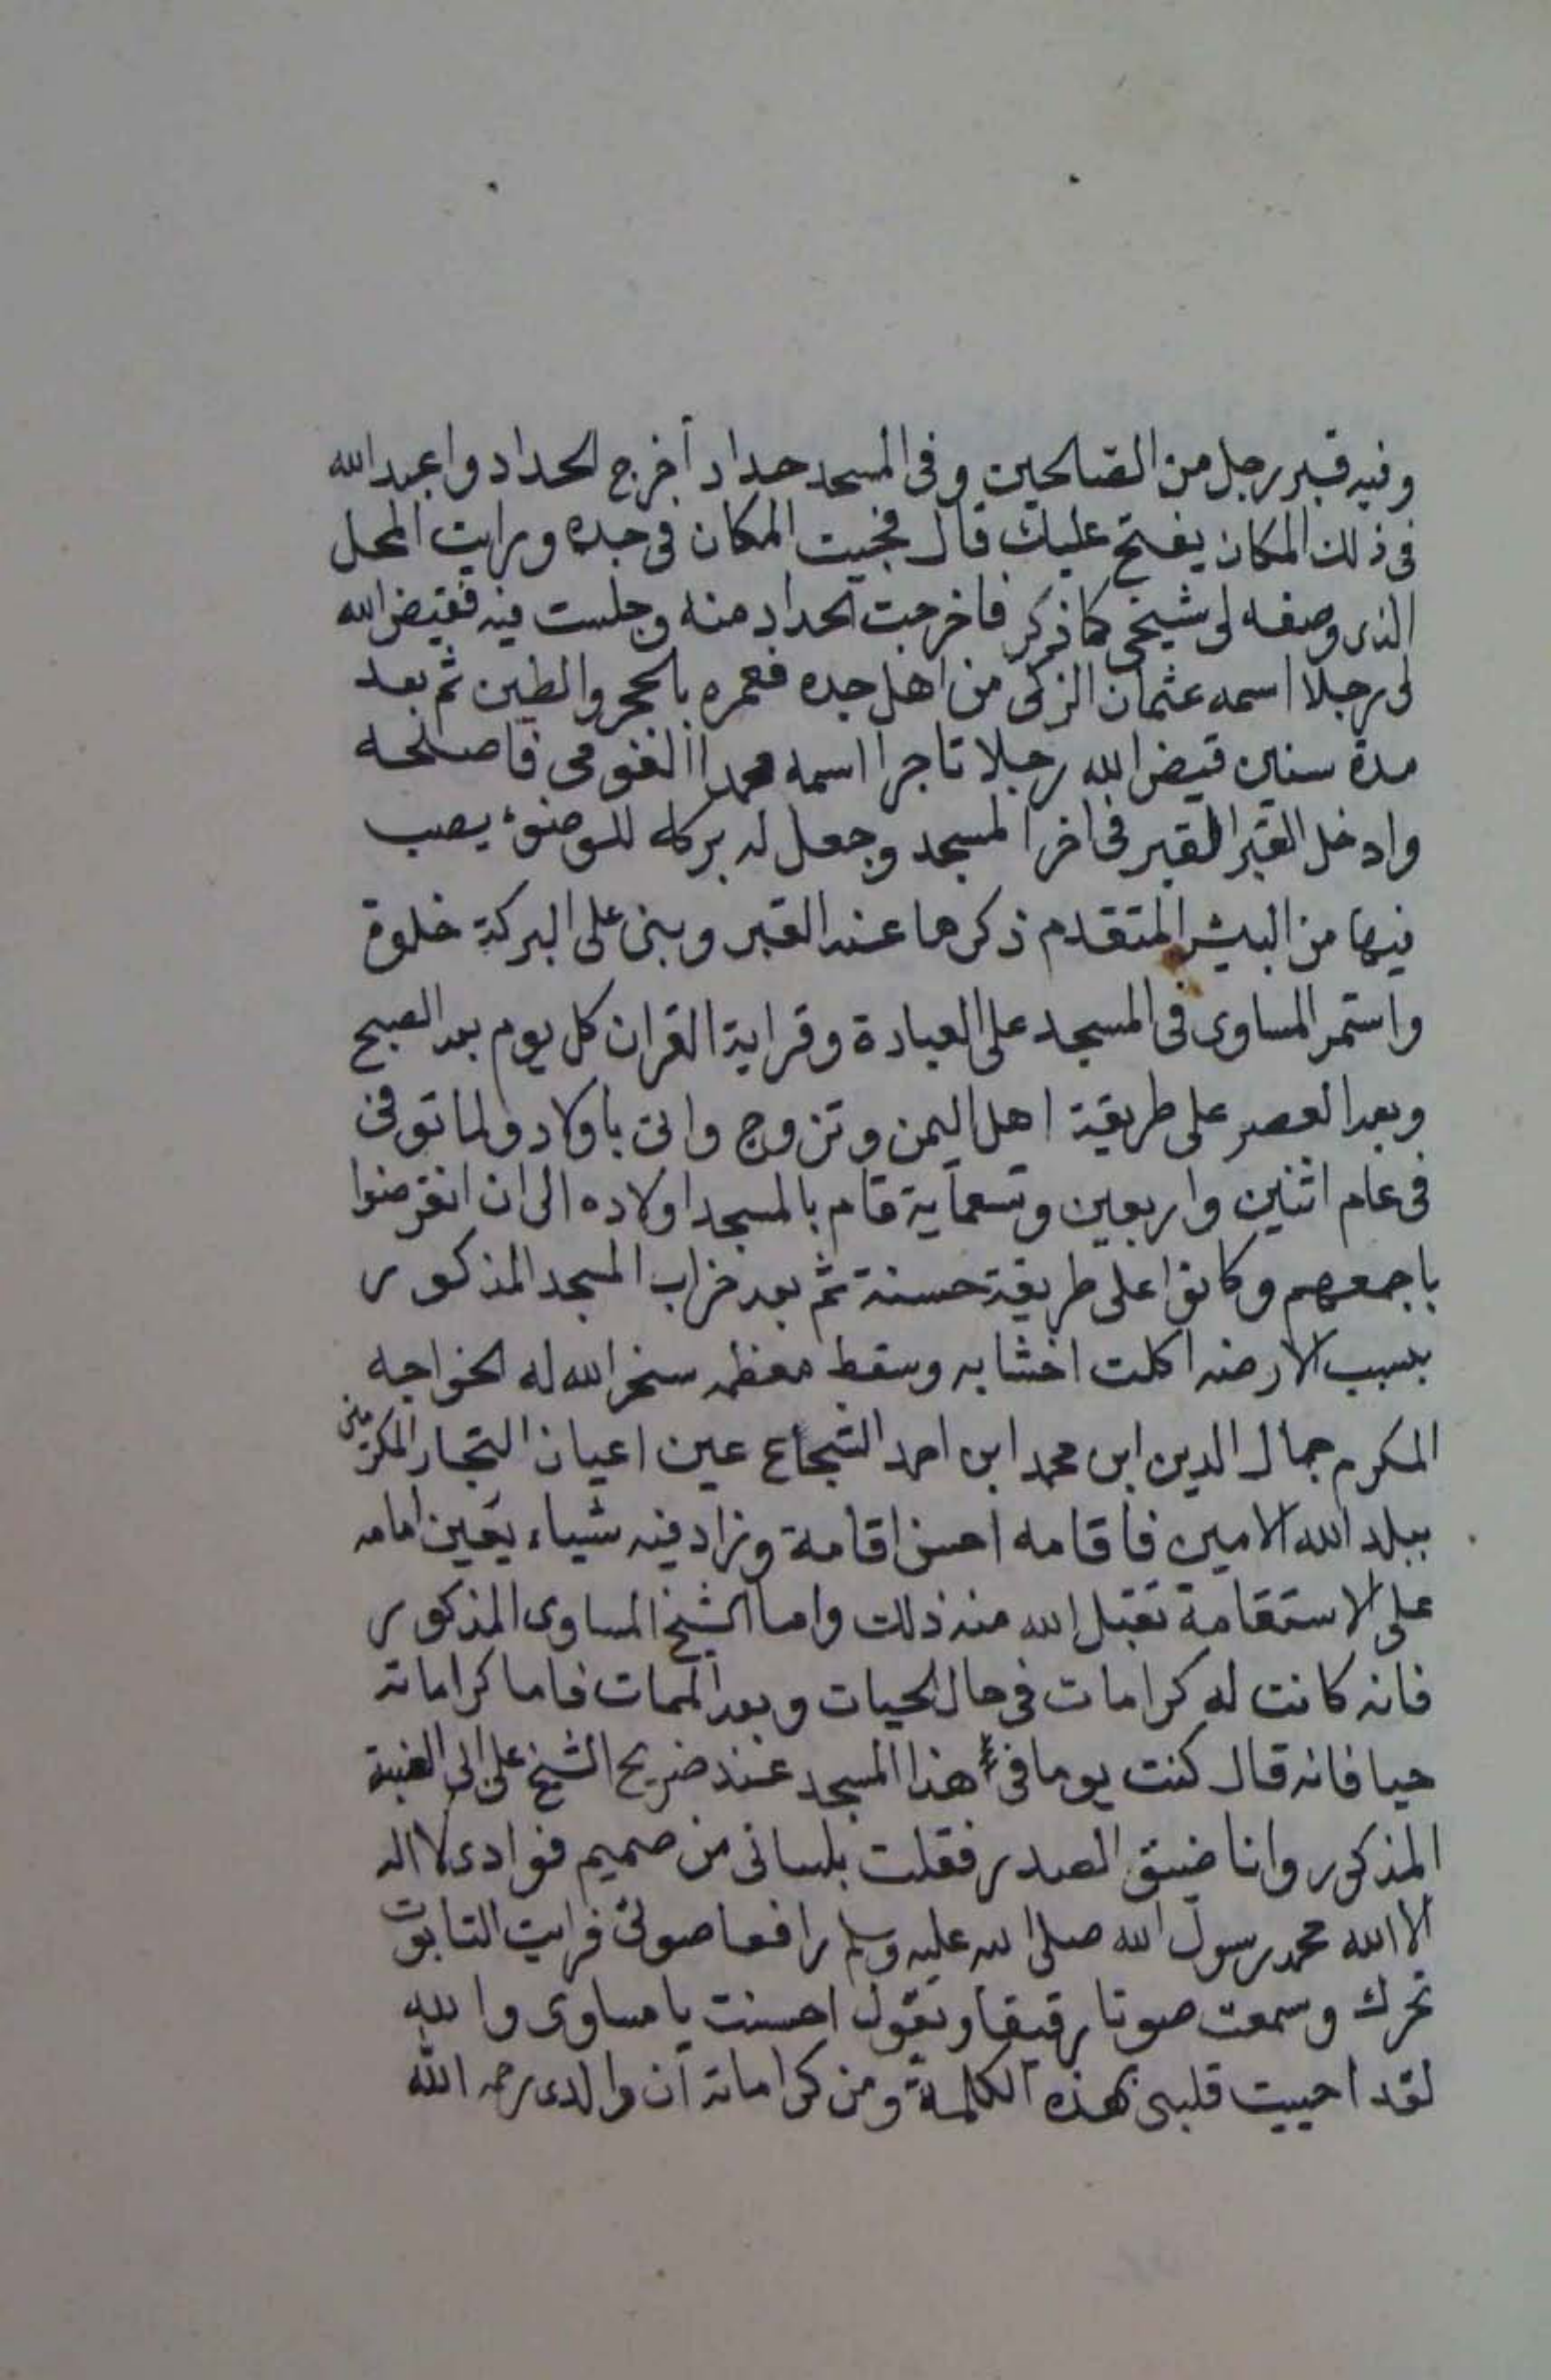 وفيه قبر رجل من الصالحين وفى المسجد حداد أخرج الحداد واعبد الله
فى ذلك المكان يفتح عليك قال فجيت المكان فى جده ورايت المحل
الذى وصفه لى شيخى كما ذكر فاخرجت الحداد منه وجلست فيه فقيض الله
لى رجلا اسمه عثمان الزكى من اهل جده فعمره بالحجر والطين ثم بعد
مدة سنين قيض الله رجلا تاجرا اسمه محمدا فاصلحه
وادخل القبر القبر فى اخر المسجد وجعل له بركه للوضوء يصب
فيها من البير المتقدم ذكرها عند القبر وبنى على البركة خلوة
واستمر المساوى فى المسجد على العبادة وقراية القران كل يوم بعد الصبح
وبعد العصر على طريقة اهل اليمن وتزوج واتى باولاد ولما توفى
فى عام اثنين واربعين وتسعماية قام بالمسجد اولاده الى ان انقرضوا
باجمعهم وكانوا على طريقة حسنة ثم بعد خراب المسجد المذكور
بسبب الارضه اكلت اخشابه وسقط معظمه سخر الله له الخواجه
المكرم جمال الدين ابن محمد ابن احمد الشجاع عين اعيان التجار المكرمين
ببلد الله الامين فاقامه احسن اقامة وزاد فيه شياء يعين امامه
على الاستقامة تقبل الله منه ذلك واما الشيخ المساوى المذكور
فانه كانت له كرامات فى حال الحيات وبعد الممات فاما كراماته
حيا فانه قال كنت يوما فى هذا المسجد عند ضريح الشيخ على
المذكور وانا ضيق الصدر فقلت بلسانى من صميم فوادى لا اله
الا الله محمد رسول الله صلى الله عليه وسلم رافعا صوتى فرايت التابوت
تحرك وسمعت صوتا رقيقا ويقول احسنت يا مساوى والله
لقد احييت قلبى بهذه الكلمة ومن كراماته أن والدى رحمه الله